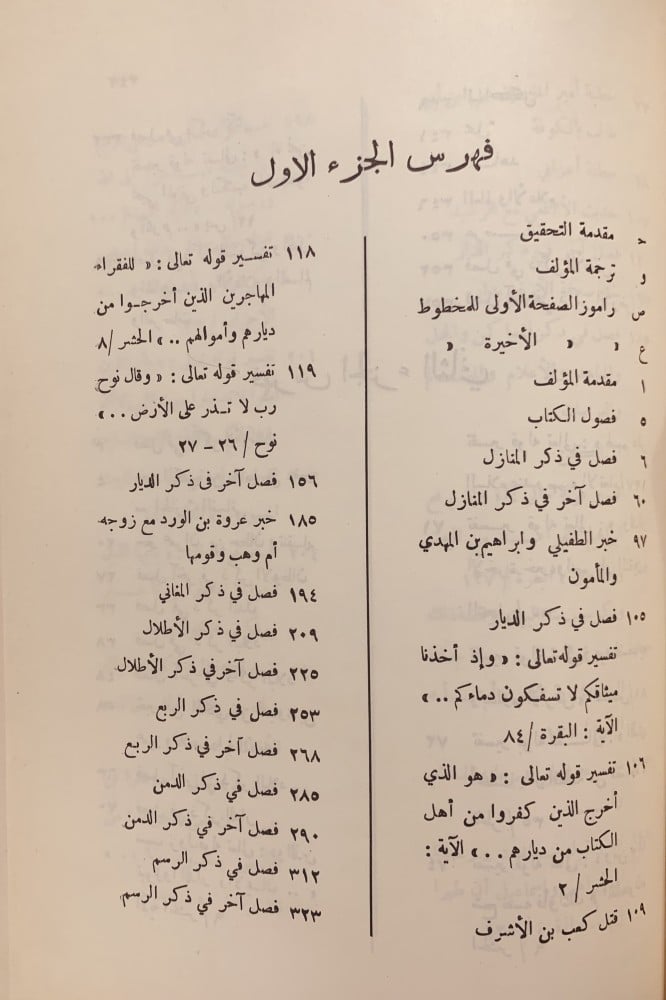 فهرس الجزء الاول
د مقدمة التحقيق
و ترجمة المؤلف
ص راموز الصفحة الأولى للمخطوط
ع » » الأخيرة »
١ مقدمة المؤلف
٥ فصول الكتاب
٦ فصل في ذكر المنازل
٦٠ فصل آخر في ذكر المنازل
٩٧ خبر الطفيلي وابراهيم بن المهدي
والمأمون
١٠٥ فصل في ذكر الديار
تفسير قوله تعالى : « وإذ أخذنا
ميثاقكم لا تسفكون دماءكم .. »
الآية : البقرة / ٨٤
١٠٦ تفسير قوله تعالى : « هو الذي
أخرج الذين كفروا من أهل
الكتاب من ديارهم .. » الآية :
الحشر / ٢
١٠٩ قتل كعب بن الأشرف
١١٨ تفسير قوله تعالى : « للفقراء
المهاجرين الذين أخرجوا من
ديارهم وأموالهم .. » الحشر / ٨
١١٩ تفسير قوله تعالى : « وقال نوح
رب لا تذر على الأرض .. »
نوح / ٢٦ - ٢٧
١٥٦ فصل آخر فى ذكر الديار
١٨٥ خبر عروة بن الورد مع زوجه
أم وهب وقومها
١٩٤ فصل في ذكر المغاني
٢٠٩ فصل في ذكر الأطلال
٢٢٥ فصل آخر في ذكر الأطلال
٢٥٣ فصل في ذكر الربع
٢٦٨ فصل آخر في ذكر الربع
٢٨٥ فصل في ذكر الدمن
٢٩٠ فصل آخر في ذكر الدمن
٣١٢ فصل في ذكر الرسم
٣٢٣ فصل آخر في ذكر الرسم